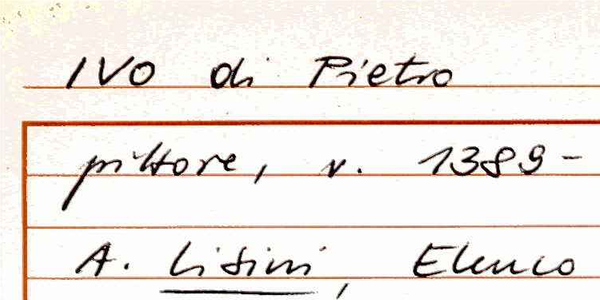 IVO di Pietro
pittore, v. 1389-
A. Lisini, Elenco